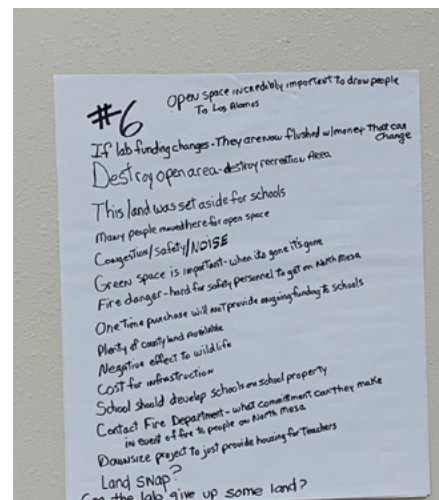 #6
Open space incredibly important to draw people
To Los Alamos
If lab funding changes - They are now flushed w/money - That can
change
Destroy open area - destroy recreation Area
This land was set aside for schools
Many people moved here for open space
Congestion/Safety/NOISE
Green space is important - when its gone it's gone
Fire danger - hard for safety personnel to get on North Mesa
One Time purchase will not provide ongoing funding to schools
Plenty of county land available
Negative effect to wildlife
Cost for infrastruction
School should develop schools on school property
Contact Fire Department - what commitment can they make
in event of fire to people on North Mesa
Downsize project to just provide housing for Teachers
Land swap?
Can the lab give up some land?